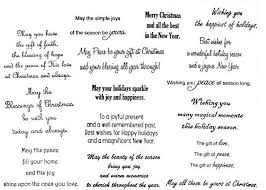 May you have
the gift of faith
the blessing of hope
and the peace of His love
at Christmas and always
May the
Blessings of Christmas
be with you
today and always
May His peace
fill your home
and His joy
upon the ocean you love.
May the simple joys
of the season be yours.
May Peace be your gift at Christmas
and your blessing all year through!
May your holidays sparkle
with joy and happiness.
To a joyful present
and a well remembered past.
Best wishes for Happy holidays
and a magnificent New Year.
May the beauty of the season
bring you joy
and warm memories
to cherish throughout the year.
Merry Christmas
and all the best
in the New Year.
Wishing you
the happiest of holidays.
Best wishes for
a wonderful holiday season
and a joyous New Year
Wishing you peace all season long.
Wishing you
many magical moments
this holiday season.
The gift of love.
The gift of peace.
The gift of happiness.
May all these be yours